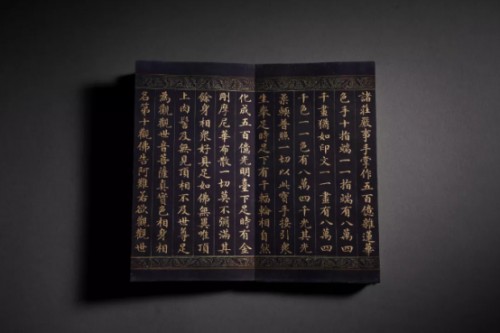 諸莊嚴事手掌作五百億雜蓮華
色手十指端一一指端有八萬四
千畫猶如印文一一畫有八萬四
千色一一色有八萬四千光其光
柔軟普照一切以此寶手接引眾
生舉足時足下有千輻輪相自然
化成五百億光明臺下足時有金
剛摩尼華布散一切莫不彌滿其
餘身相眾好具足如佛無異唯頂
上肉髻及無見頂相不及世尊是
為觀觀世音菩薩真實色身相
名第十觀佛告阿難若欲觀觀世